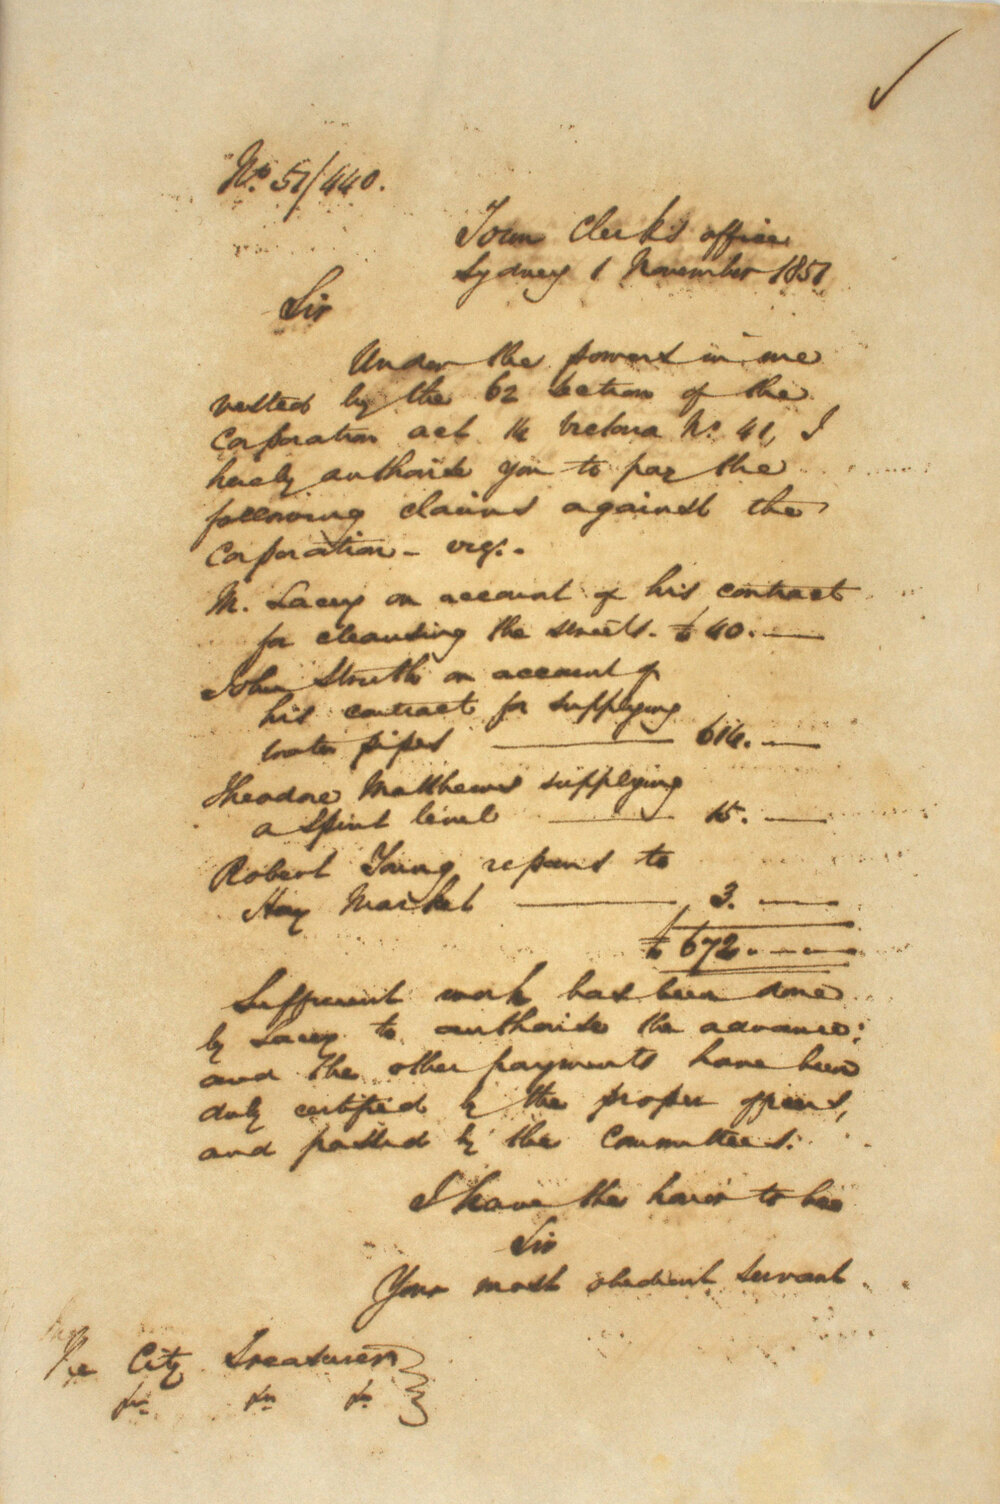 No. 51/440.
Town Clerk's office
Sydney 1 November 1851
Sir
Under the powers in me
vested by the 62 section of the
Corporation act 14 Victoria No. 41, I
hereby authorise you to pay the
following claims against the
Corporation - viz. -
M. Lacey on account of his contract
for cleansing the streets. £ 40. —
John Struth on account of
his contract for supplying
water pipes — 614. —
Theodore Matthews supplying
a Spirit level — 15. —
Robert Young repairs to
Hay Market — 3. —
£ 672. — —
Sufficient work has been done
by Lacey to authorise the advance;
and the other payments have been
duly certified by the proper officers,
and passed by the Committees.
I have the honor to be
Sir
Your most obedient servant
The City Treasurer